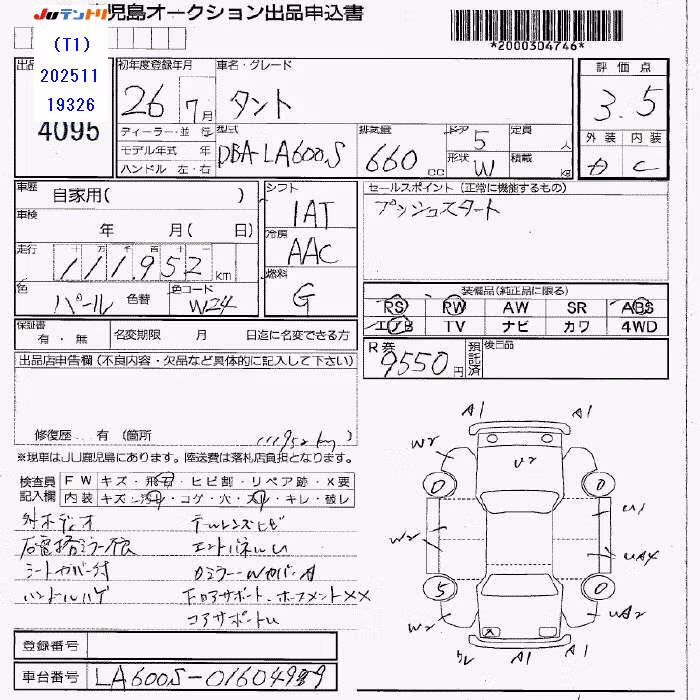 JUテントリ
鹿児島オークション出品申込書
*2000304746*
(T1)
202511
19326
出品
4095
初年度登録年月
26年 7月
車名・グレード
タント
評価点
3.5
外装 内装
C
ディーラー・並行
モデル年式 年
ハンドル 左・右
型式
DBA-LA600S
排気量
660 cc
ドア
5
形状
W
定員
人
積載
kg
車歴
自家用( )
車検
年 月( 日)
走行
十 万 千 百 十 一
111,952 km
色
パール
色替
色コード
W24
シフト
IAT
冷房
AAC
燃料
G
セールスポイント(正常に機能するもの)
プッシュスタート
装備品(純正品に限る)
RS RW AW SR ABS
エアB TV ナビ カワ 4WD
保証書
有・無
名変期限 月 日迄に名変できる方
R券
9550円
預託済
後日品
出品店申告欄(不良内容・欠品など具体的に記入して下さい)
修復歴 有(箇所
111952km)
※現車はJU鹿児島にあります。陸送費は落札店負担となります。
検査員
記入欄
FW キズ・飛石・ヒビ割・リペア跡・X要
内装 キズ・汚れ・コゲ・穴・スレ・キレ・破レ
シートカバー付
ハンドルハゲ
テールレンズヒビ
エンドパネルU
コアサポートU
A1 A1
W2
U2
0 0
U1
W2
UA4
5 0
W2
UA2
A1 A1
登録番号
車台番号
LA600S-0160499